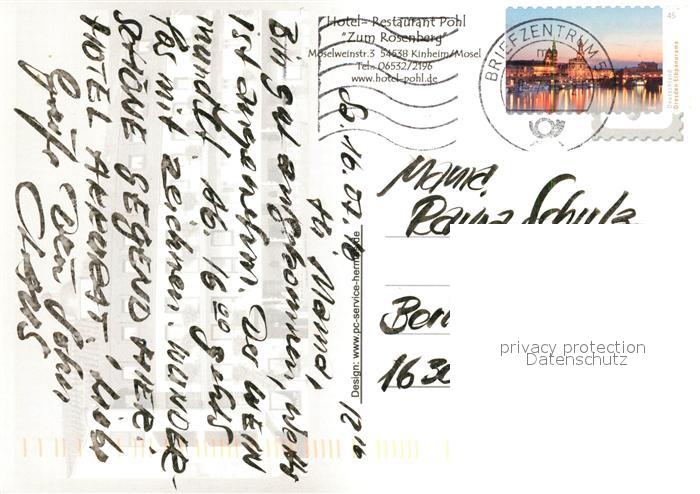 Hotel- Restaurant Pohl
"Zum Rosenberg"
Moselweinstr.3 54538 Kinheim/Mosel
Tel.: 06532/2196
www.hotel-pohl.de
BRIEFZENTRUM
45
Deutschland
Dresden Elbpanorama
SA. 16.07.16
12 16
Hi Mama,
Bin gut angekommen, Wetter
ist angenehm. Der WEIN
mundet. Ab 16 00 geht's
los mit zeichnen. WUNDER-
SCHÖNE GEGEND HIER.
HOTEL APPROBAT, liebe
Grüße Dein Sohn
CLAUS
Design: www.pc-service-herm de
Mama
Schulz
Ber
16
privacy protection
Datenschutz